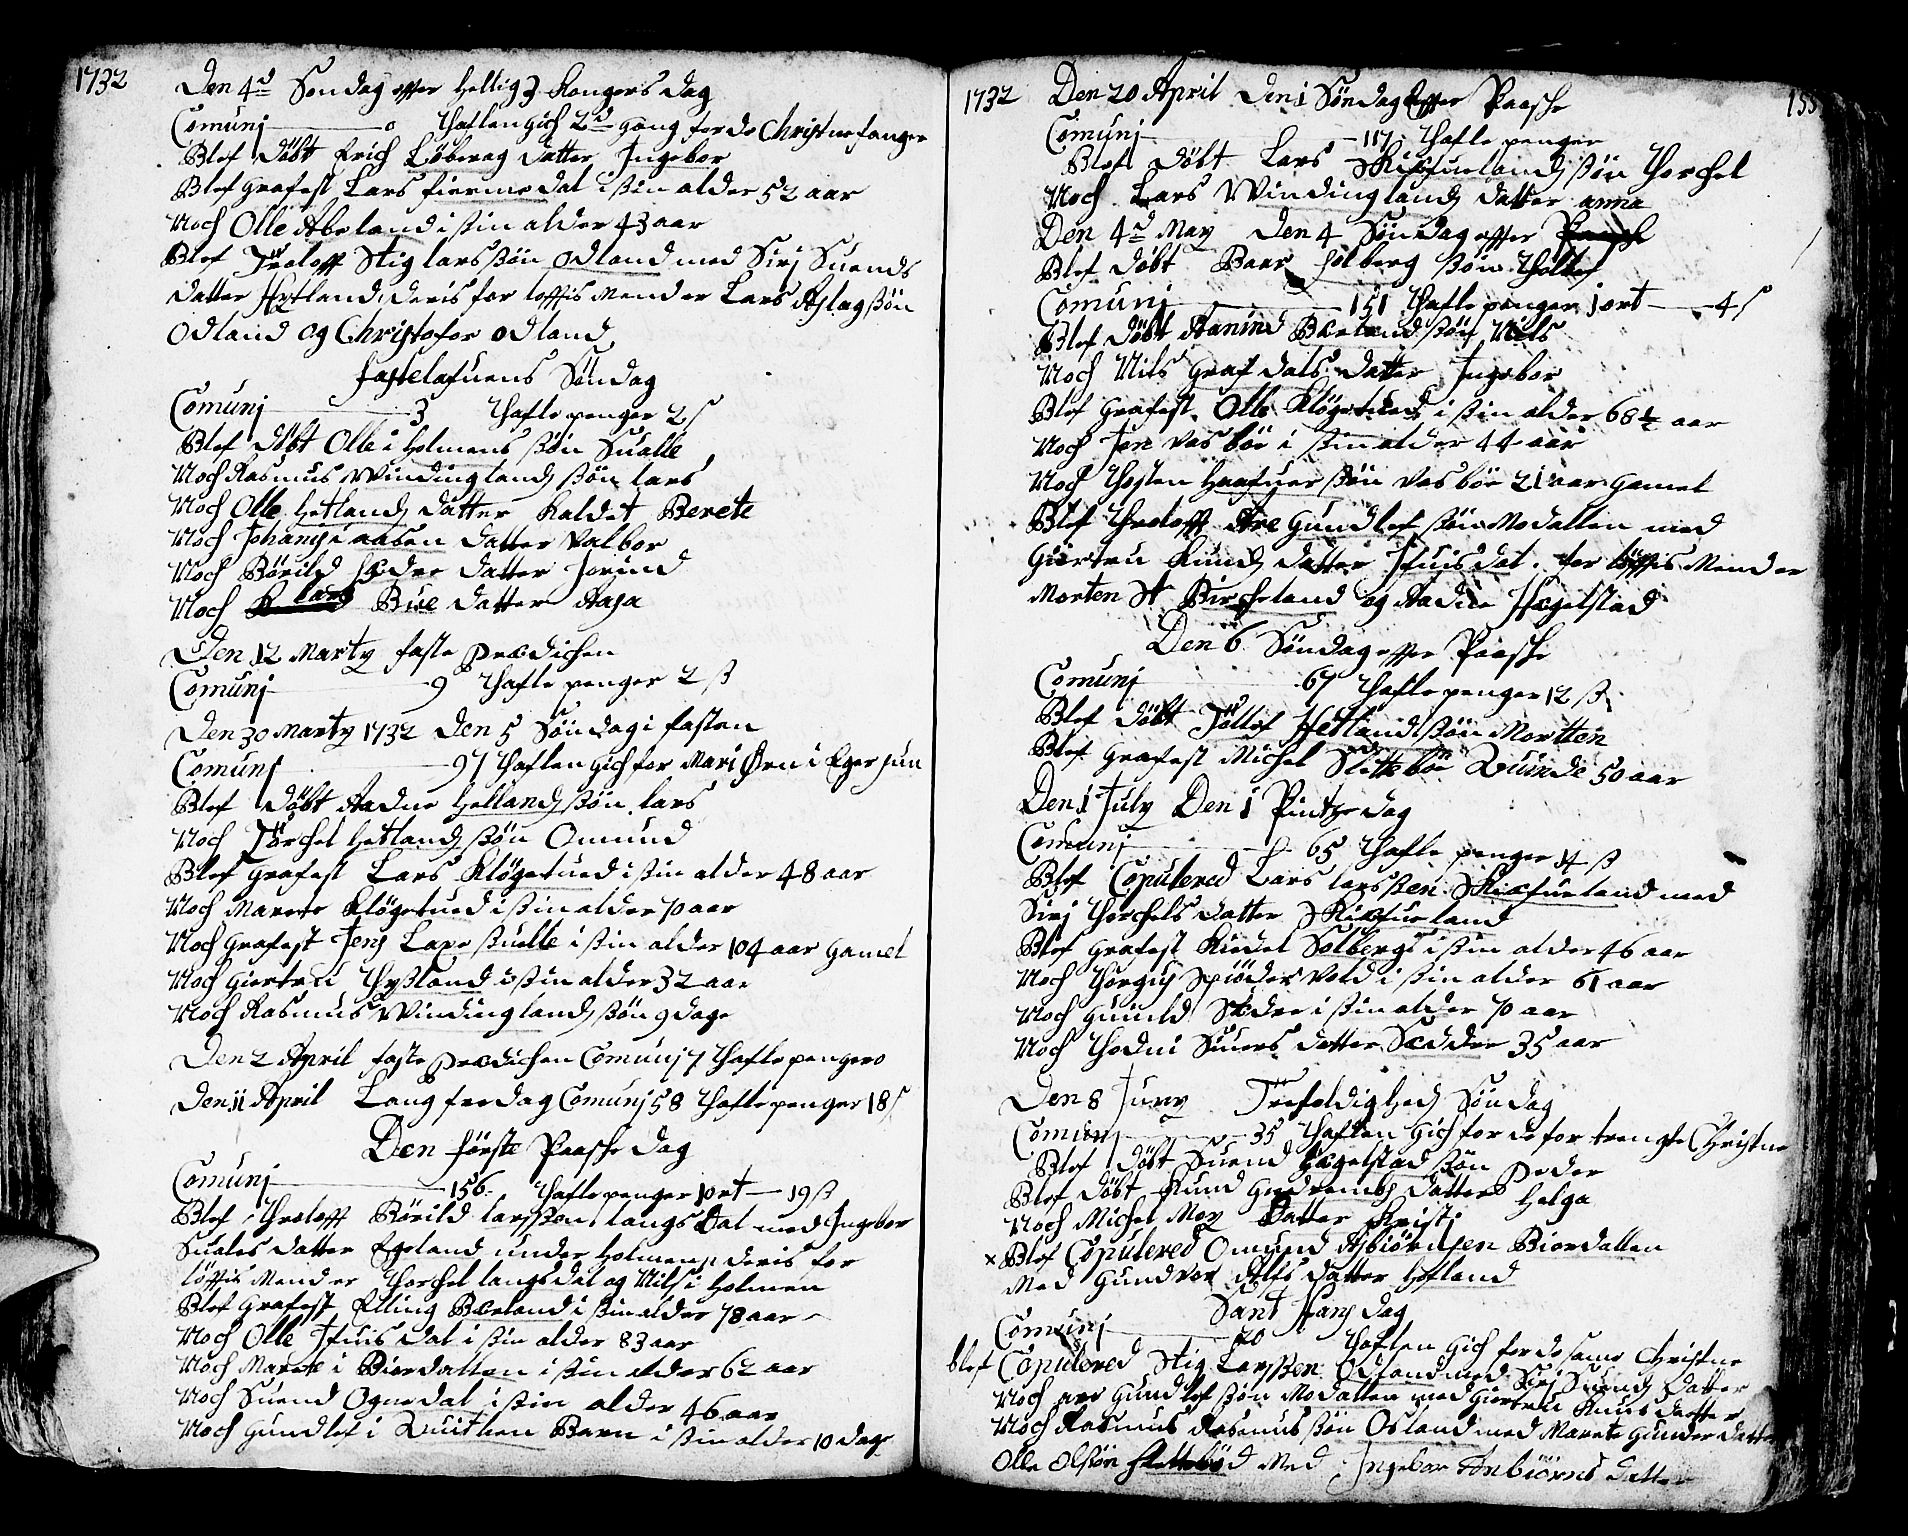 1732
Den 4de Søndag effter hellig 3 Kongers dag
Comunj 0 Thaflen gich 2de gang for de Christne fanger
Blef døbt Erich Løberag datter Ingebor
Blef grafest Lars fiermedal i sin alder 52 aar
Noch Olle Abeland i sin alder 43 aar
Blef Troloff Stig larssøn Odland med Sirj Suends
datter Hytland, deris for loffis Mender Lars Aslagsøn
Odland og Christofer Odland
fastelafuens Søndag
Comunj 3 Thafle penger 2 s
Blef døbt Olle i Holmens søn Sualle
Noch Rasmus Windinglands søn lars
Noch Olle Hetlands datter kaldet Berete
Noch Johans i aasen datter Valbor
Noch Børild datter Jorind
Noch lars Bue datter Aasa
Den 12 Marty faste prædichen
Comunj 9 Thafle penger 2 ß
Den 30 Marty 1732 Den 5 Søndag i fasten
Comunj 97 Thaflen gich for Mari Ørn i Egersun
Blef døbt Aadne Hellands søn lars
Noch Torchel Hetlands søn Omund
Blef grafest Lars Kløgetued i sin alder 48 aar
Noch Marete Kløgetued i sin alder 70 aar
Noch grafest Jens Laxesuelle i sin alder 104 aar gamel
Noch Giertru Thysland i sin alder 32 aar
Noch Rasmus Windinglands søn 9 dage
Den 2 April faste prædichen Comunj 7 Thafle penger 0
Den 11 April Lang fredag Comunj 58 Thafle penger 18 s
Den første Paasche dag
Comunj 156 Thafle penger 1 ort 19 ß
Blef Throloff Børild larssøn langsdal med Ingebor
Suales datter Egeland under Holmen, deris for
løffis Mender Thorchel langsdal og Nils i Holmen
Blef grafest Elling Bæeland i sin alder 78 aar
Noch Olle Ifuisdal i sin alder 83 aar
Noch Marete i Biordallen i sin alder 62 aar
Noch Suend Ognedal i sin alder 46 aar
Noch Gundlef i Quitlien Barn i sin alder 10 dage
1732 Den 20 April Den 1 Søndag effter Paasche 155
Comunj 117 Thafle penger
Blef døbt Lars Skiefuelands søn Thorchel
Noch Lars Windinglands datter anna
Den 4de May Den 4 Søndag effter Paasche
Blef døbt Baar Solberg søn
Comunj 151 Thafle penger 1 ort 4 s
Blef døbt Aanind Bæelands søn Niels
Noch Nils Grafdals datter Ingebor
Blef grafest Olle Kløgetued i sin alder 68 ½ aar
Noch Jon Vasbøe i sin alder 44 aar
Noch Thosten Haafuersøn Vasbøe 21 aar gamel
Blef Throloff Are Gundlefsøn Modallen med
Giertru Knuds datter Ifuisdal for løffis Mender
Morten St Bircheland og Aadne Hægelstad
Den 6 Søndag effter Paasche
Comunj 67 Thafle penger 12 ß
Blef døbt Tollef Hetlands søn Mortten
Blef grafest Michel Slettebøe Quinde 50 aar
Den 1 July Den 1 Pintze dag
Comunj 65 Thafle penger 14 ß
Blef Copulered Lars larssen Skiæfueland med
Sirj Thorchels datter Skiæfueland
Blef grafest Kiedel Solbergs i sin alder 46 aar
Noch Thorgis Spiødevold i sin alder 61 aar
Noch Guunld Sædre i sin alder 70 aar
Noch Thodni Siuers datter Sædder 35 aar
Den 8 Juny Trefoldigheds Søndag
Comunj 35 Thaflen gich for de for trengte Christne
Blef døbt Suend Hægelstad søn Peder
Blef døbt Knud datter Helga
Noch Michel Moy datter Kristi
× Blef Copulered Omund Asbiørnsen Biordallen
Med Gundvor Alfs datter Hofland
Sant Hans dag
Comunj 20 Thaflen gich for de same Christne
blef Copulered Stig Larssen Odland med Sirj Suends datter
Noch are Gundlefsøn Modallen med Giertru Knuds datter
Noch Rasmus Rasmussøn Osland med Marete Gunder datter
Olle Olsøn Slettebød Med Ingebor Tonbiørns datter